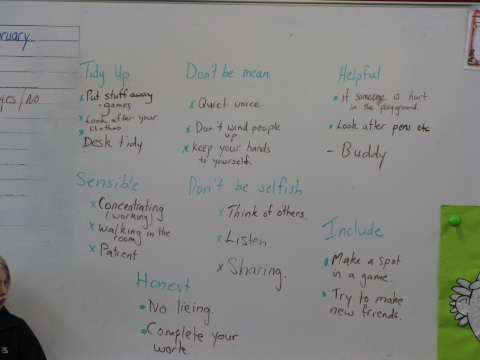 ruary
yes/no
Tidy Up
x Put stuff away
- games
x Look after your
x clothes
Desk tidy
Don't be mean
x Quiet voice.
x Don't wind people
up.
x keep your hands
to yourself.
Helpful
• If someone is hurt
in the playground.
• Look after pens etc
- Buddy
Sensible
x Concentrating
(working)
x Walking in the
room
x Patient
Don't be selfish
x Think of others.
x Listen
x Sharing.
Include
• Make a spot
in a game.
• Try to make
new friends.
Honest
• No lieing.
• Complete your
work.